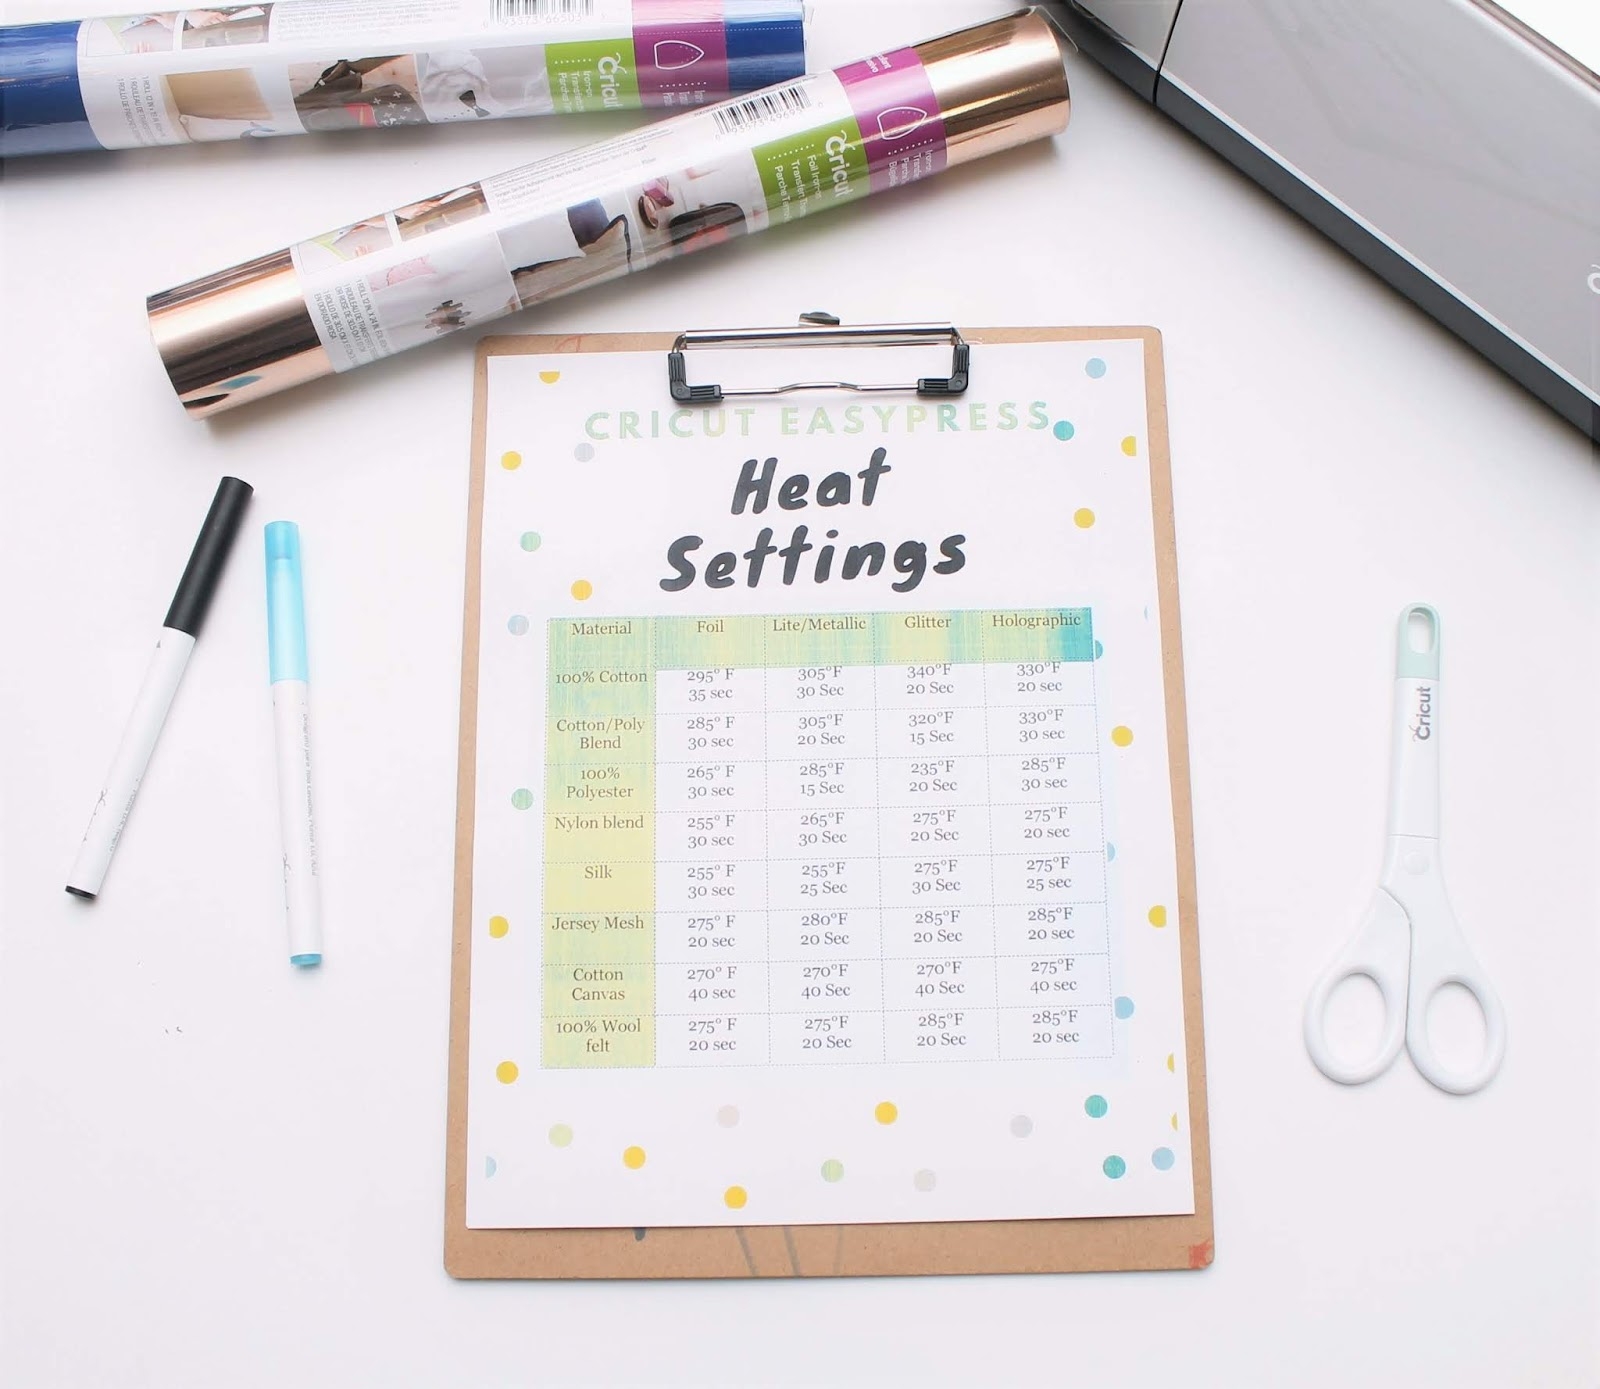 Cricut
Cricut
Foil Iron-on
1 ROLL 12 IN. X 24 IN.
CRICUT EASYPRESS
Heat
Settings
Material Foil Lite/Metallic Glitter Holographic
100% Cotton 295° F 305°F 340°F 330°F
35 sec 30 Sec 20 Sec 20 sec
Cotton/Poly 285° F 305°F 320°F 330°F
Blend 30 sec 20 Sec 15 Sec 30 sec
100% 265° F 285°F 235°F 285°F
Polyester 30 sec 15 Sec 20 Sec 30 sec
Nylon blend 255° F 265°F 275°F 275°F
30 sec 30 Sec 20 Sec 20 sec
Silk 255° F 255°F 275°F 275°F
30 sec 25 Sec 30 Sec 25 sec
Jersey Mesh 275° F 280°F 285°F 285°F
20 sec 20 Sec 20 Sec 20 sec
Cotton 270° F 270°F 270°F 275°F
Canvas 40 sec 40 Sec 40 Sec 40 sec
100% Wool 275° F 275°F 285°F 285°F
felt 20 sec 20 Sec 20 Sec 20 sec
Cricut